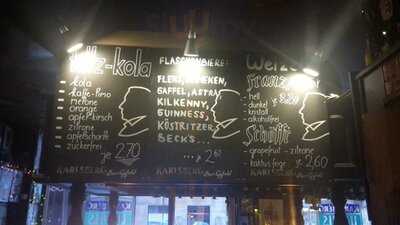 fritz-kola
kola
kaffee-limo
melone
orange
apfel-kirsch
zitrone
apfelschorle
zuckerfrei
je 2.70
KARLSBERG
FLASCHENBIERE:
FLENS, HEINEKEN,
GAFFEL, ASTRA,
KILKENNY,
GUINNESS,
KÖSTRITZER
BECK'S...
...2.
KARLSBERG
Weizen
- hell
- dunkel
- kristall
- alkoholfrei
3.20
Schöfft
- grapefruit - zitrone
- kaktusfeige
je 2.60
KARLSBERG